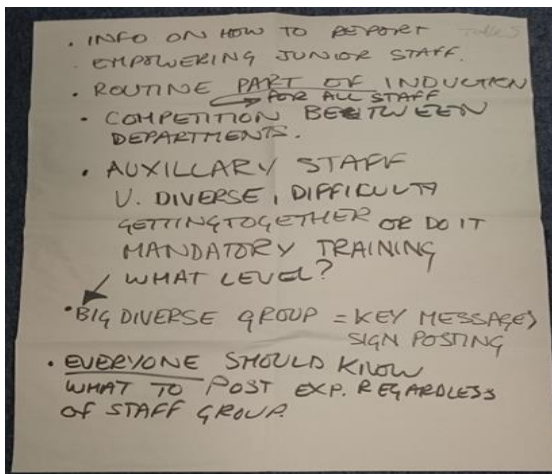 Table 5
• INFO ON HOW TO REPORT
• EMPOWERING JUNIOR STAFF.
• ROUTINE PART OF INDUCTION
FOR ALL STAFF
• COMPETITION BETWEEN
DEPARTMENTS.
• AUXILLARY STAFF
V. DIVERSE, DIFFICULTY
GETTING TOGETHER OR DO IT
MANDATORY TRAINING
WHAT LEVEL?
• BIG DIVERSE GROUP = KEY MESSAGES
SIGN POSTING
• EVERYONE SHOULD KNOW
WHAT TO POST EXP. REGARDLESS
OF STAFF GROUP.